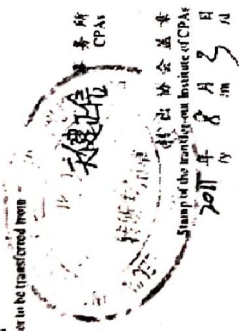 er to be transferred from
天健正信
事务所
CPAs
转出协会盖章
Stamp of the transfer-out Institute of CPAs
2011年8月3日
/y /m /d